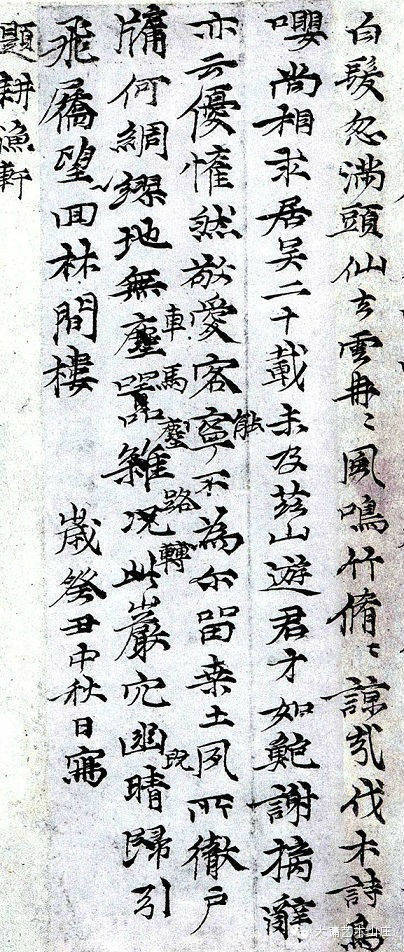 白髮忽满頭仙去雲冉〻風鳴竹脩〻諒哉伐木詩鳥
嚶尚相求居吴二十載未及兹山遊君才如鮑謝摛辭
亦云優懽然敬愛客寧不為尔留桒土夙所徹户
能
牖何綢繆地無塵囂雜况此巖穴幽晴歸引
車馬塵
路轉
既
飛屩望回林間樓 歲癸丑中秋日寫
題耕漁軒